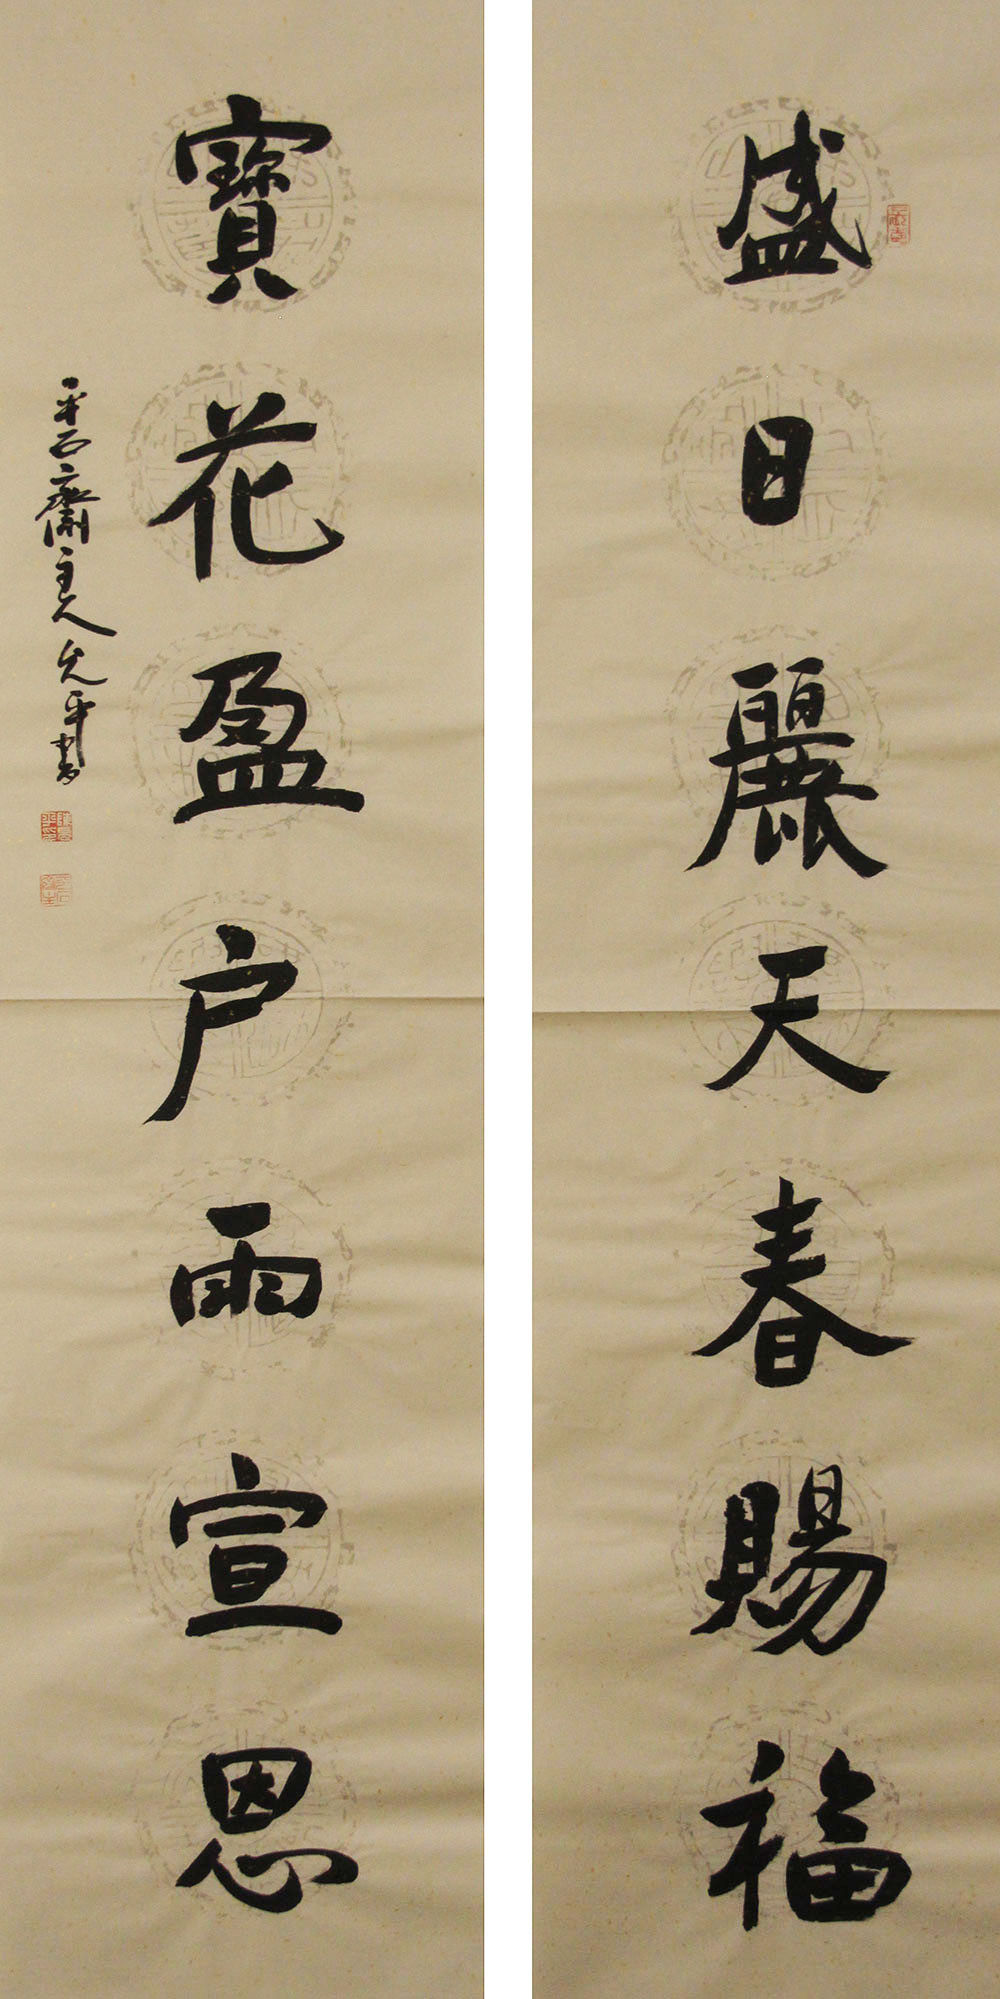 盛日麗天春賜福
寶花盈户雨宣恩
齋主人允平書